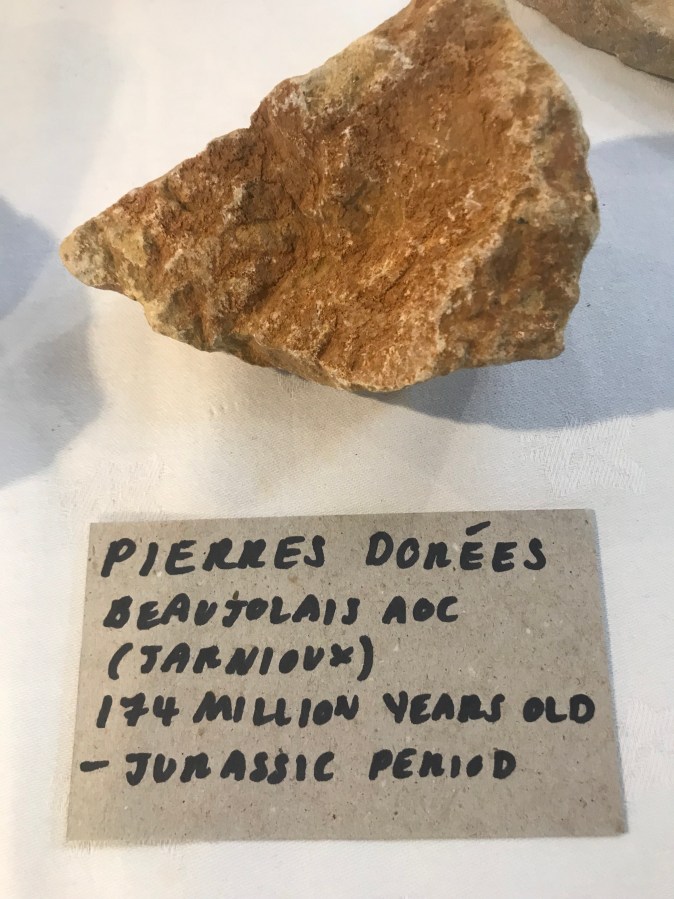 PIERRES DORÉES
BEAUJOLAIS AOC
(JARNIOUX)
174 MILLION YEARS OLD
- JURASSIC PERIOD